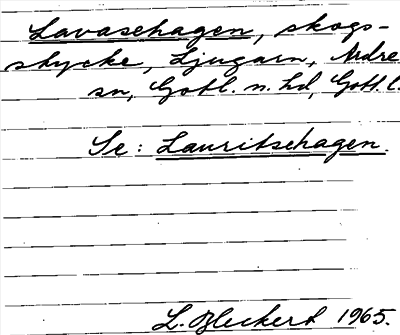 Lavasehagen, skogs-
stycke, Ljugarn, Ardre
sn, Gotl. n. hd, Gotl. l.
Se: Lauritsehagen.
L. Bleckert 1965.